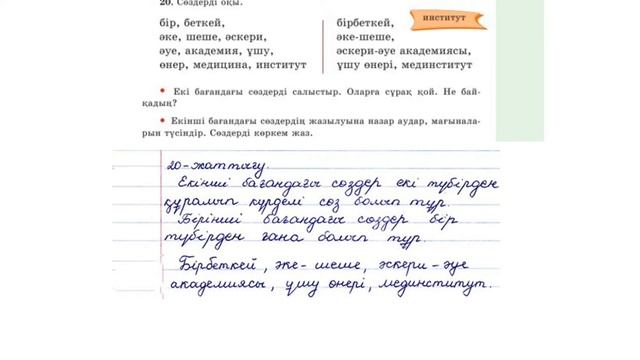 20. Сөздерді оқы.
институт
бір, беткей,
әке, шеше, әскери,
әуе, академия, ұшу,
өнер, медицина, институт
бірбеткей,
әке-шеше,
әскери-әуе академиясы,
ұшу өнері, мединститут
• Екі бағандағы сөздерді салыстыр. Оларға сұрақ қой. Не бай-
қадың?
• Екінші бағандағы сөздердің жазылуына назар аудар, мағынала-
рын түсіндір. Сөздерді көркем жаз.
20-жаттығу.
Екінші бағандағы сөздер екі түбірден
құралып күрделі сөз болып тұр.
Бірінші бағандағы сөздер бір
түбірден ғана болып тұр.
Бірбеткей, әке-шеше, әскери-әуе
академиясы, ұшу өнері, мединститут.